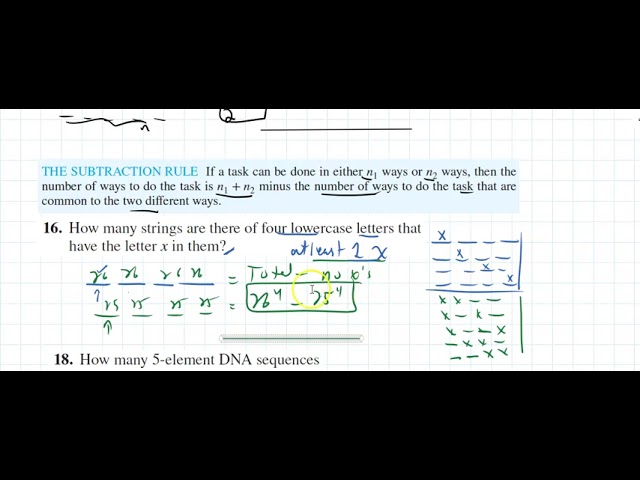 n
2
THE SUBTRACTION RULE If a task can be done in either n₁ ways or n₂ ways, then the
number of ways to do the task is n₁ + n₂ minus the number of ways to do the task that are
common to the two different ways.
16. How many strings are there of four lowercase letters that
have the letter x in them?
at least 1 x
26 26 26 26 = Total - no x's
25 25 25 25 = 26⁴ - 25⁴
x _ _ _
_ x _ _
_ _ x _
_ _ _ x
x x _ _
x - x -
x - - x
- x x -
_ _ x x
18. How many 5-element DNA sequences